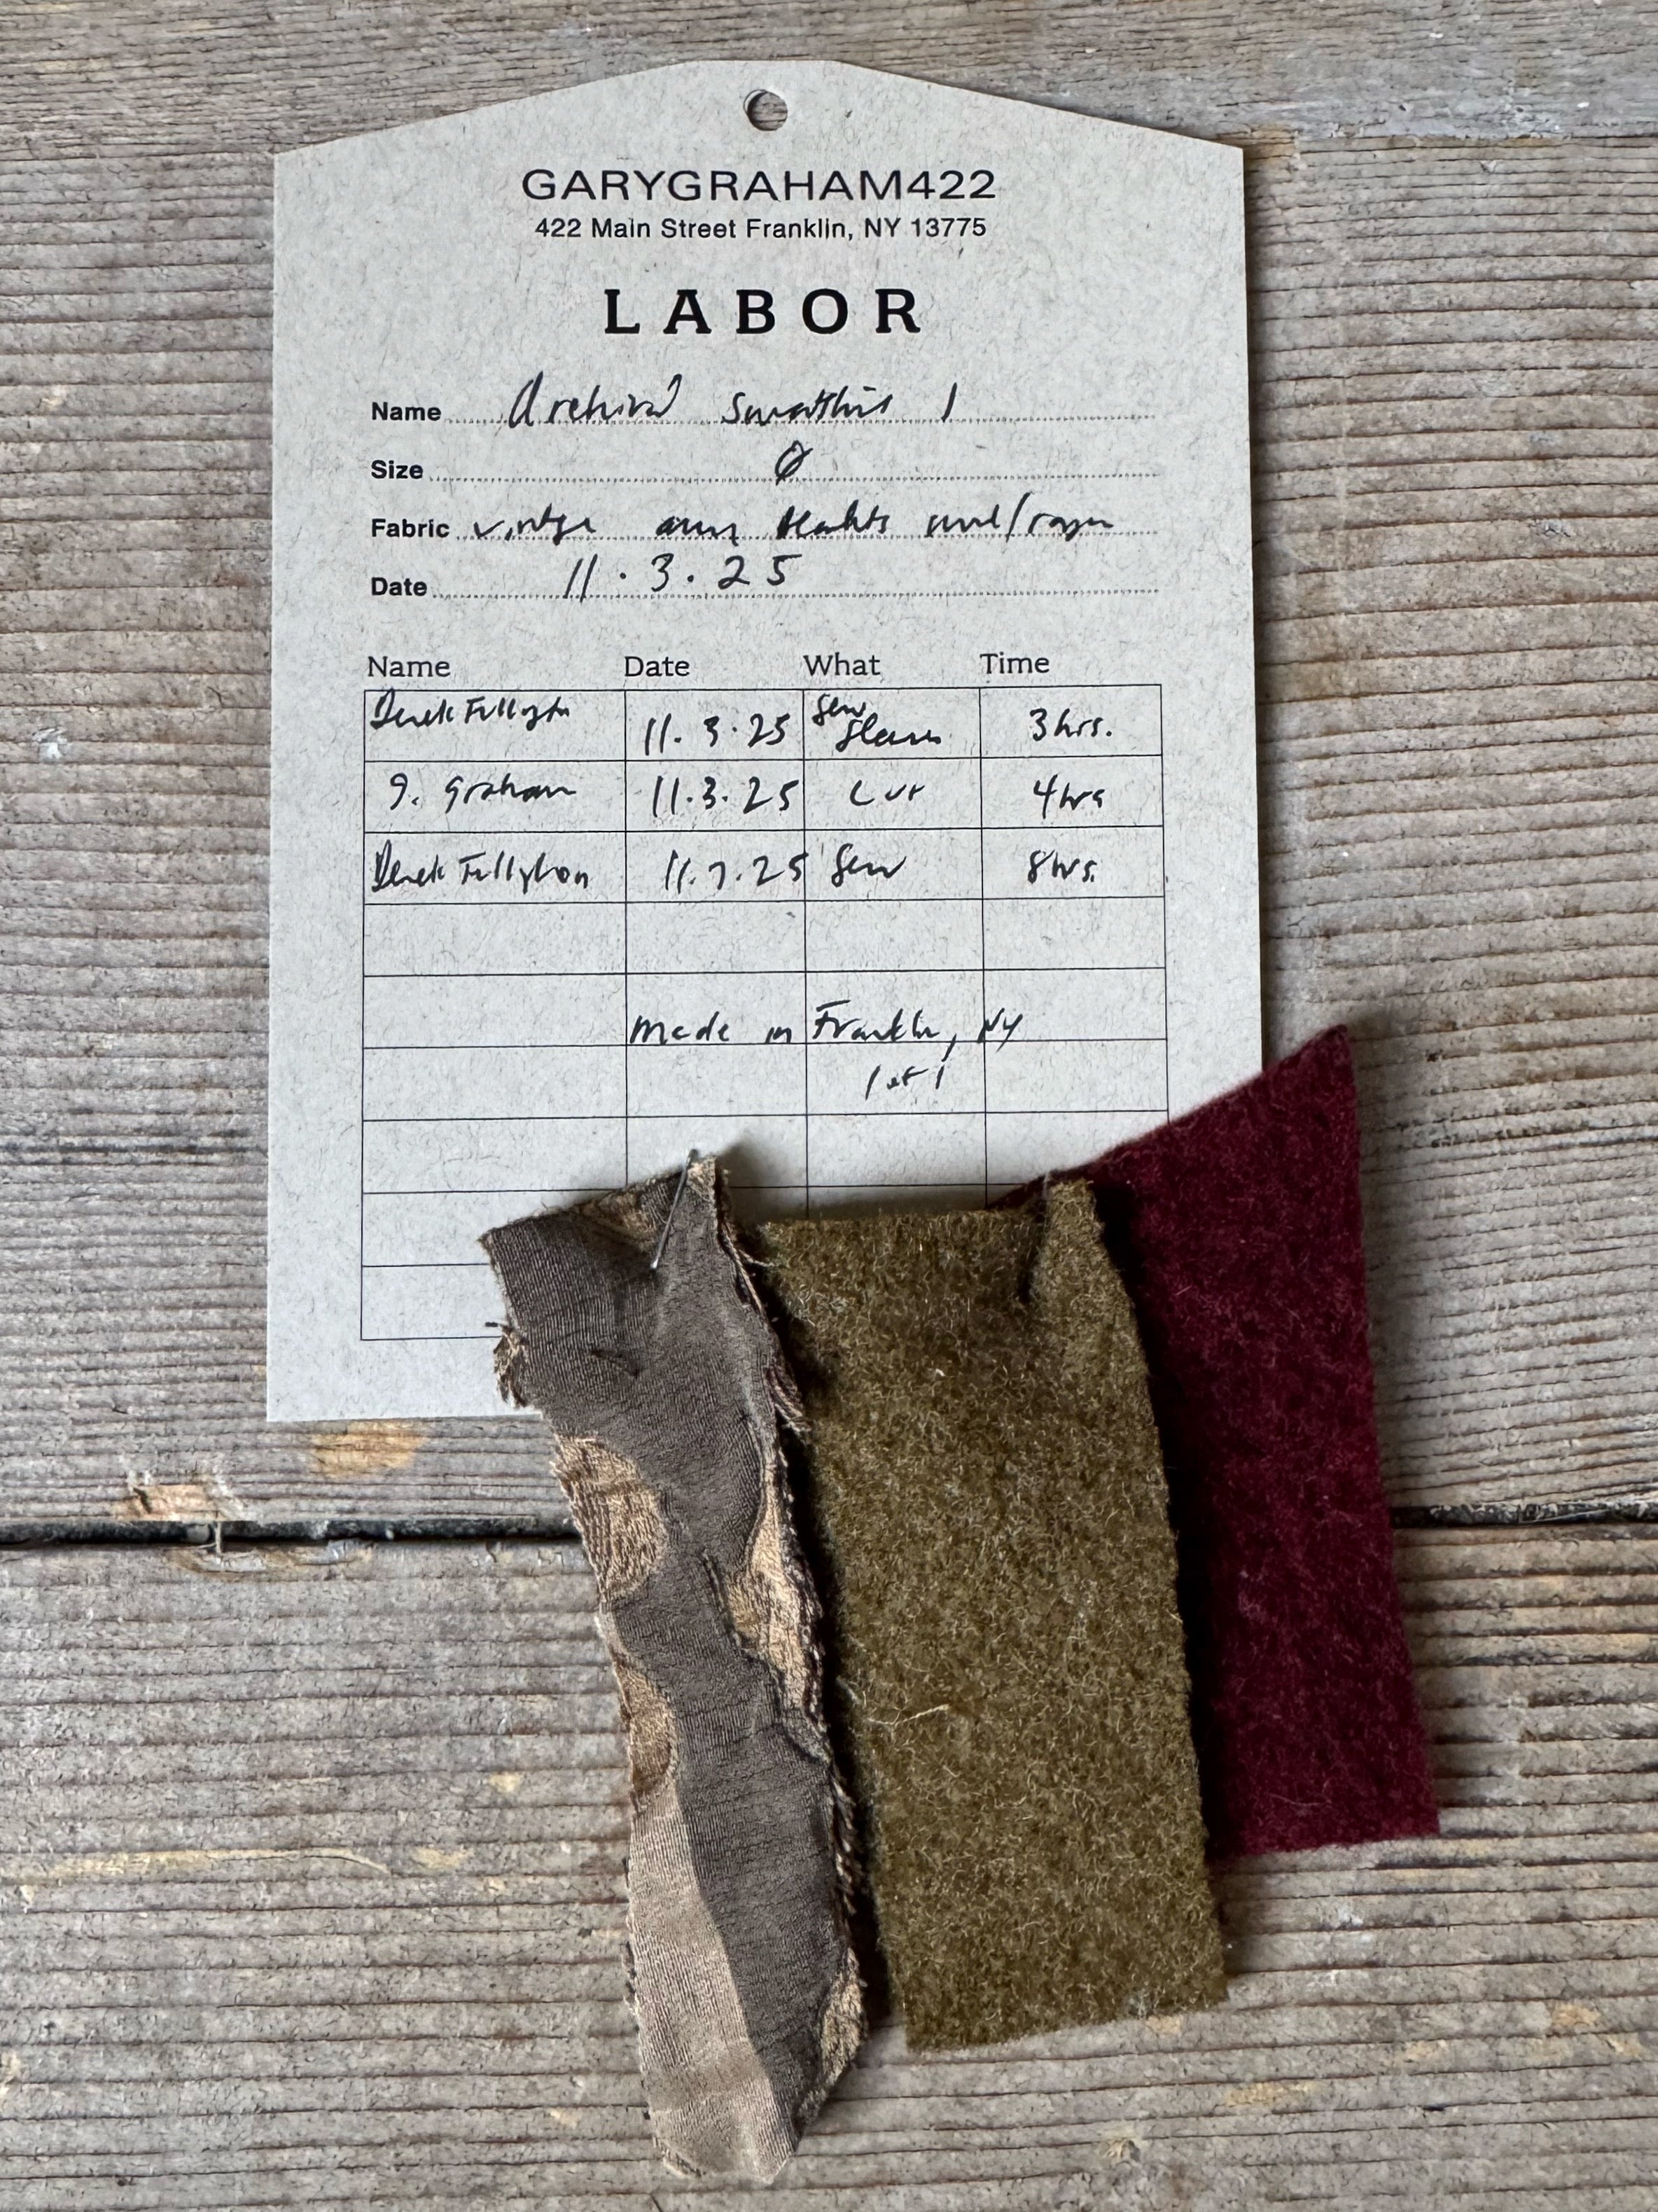 GARYGRAHAM422
422 Main Street Franklin, NY 13775
LABOR
Name Archival 1
Size 0
Fabric vintage army blankets wool/rayon
Date 11.3.25
Name Date What Time
Derek 11.3.25 Sew 3hrs.
G. Graham 11.3.25 Cut 4hrs
Derek 11.7.25 Sew 8hrs.
Made in Franklin, NY
1 of 1